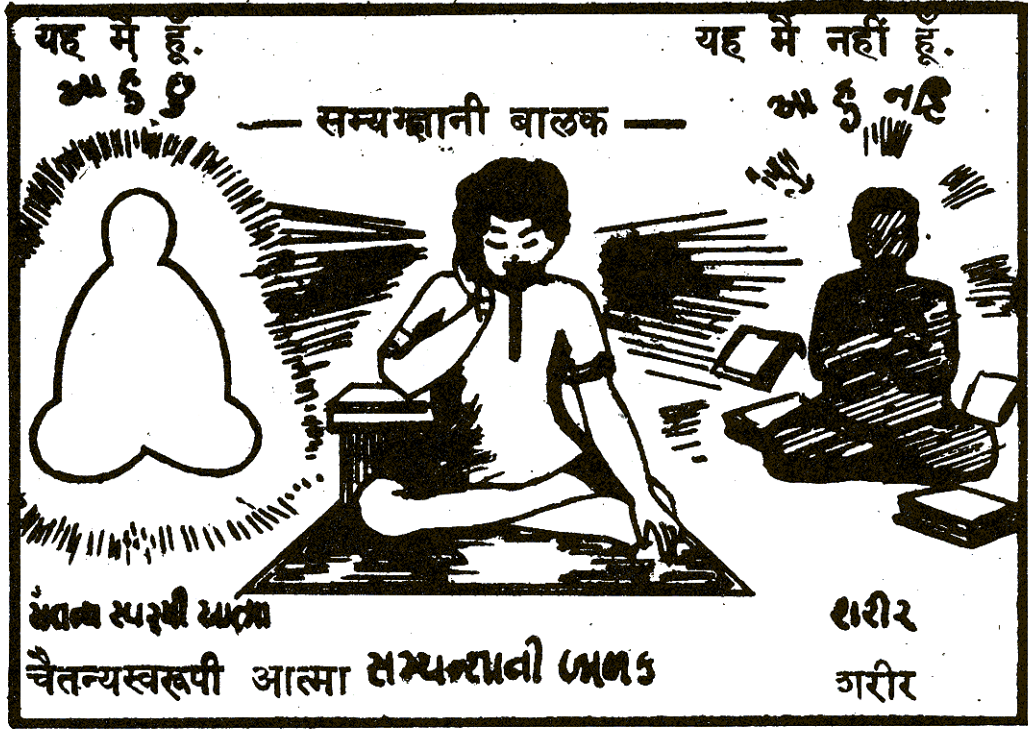 यह मैं हूँ.
આ હું છું
यह मैं नहीं हूँ.
આ હું નહિ
सम्यग्ज्ञानी बालक
ચૈતન્ય સ્વરૂપી આત્મા
चैतन्यस्वरूपी आत्मा
સમ્યગ્જ્ઞાની બાળક
શરીર
शरीर